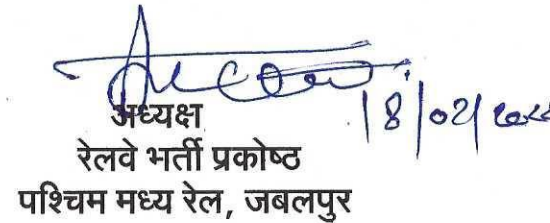 18/02/2022
अध्यक्ष
रेलवे भर्ती प्रकोष्ठ
पश्चिम मध्य रेल, जबलपुर